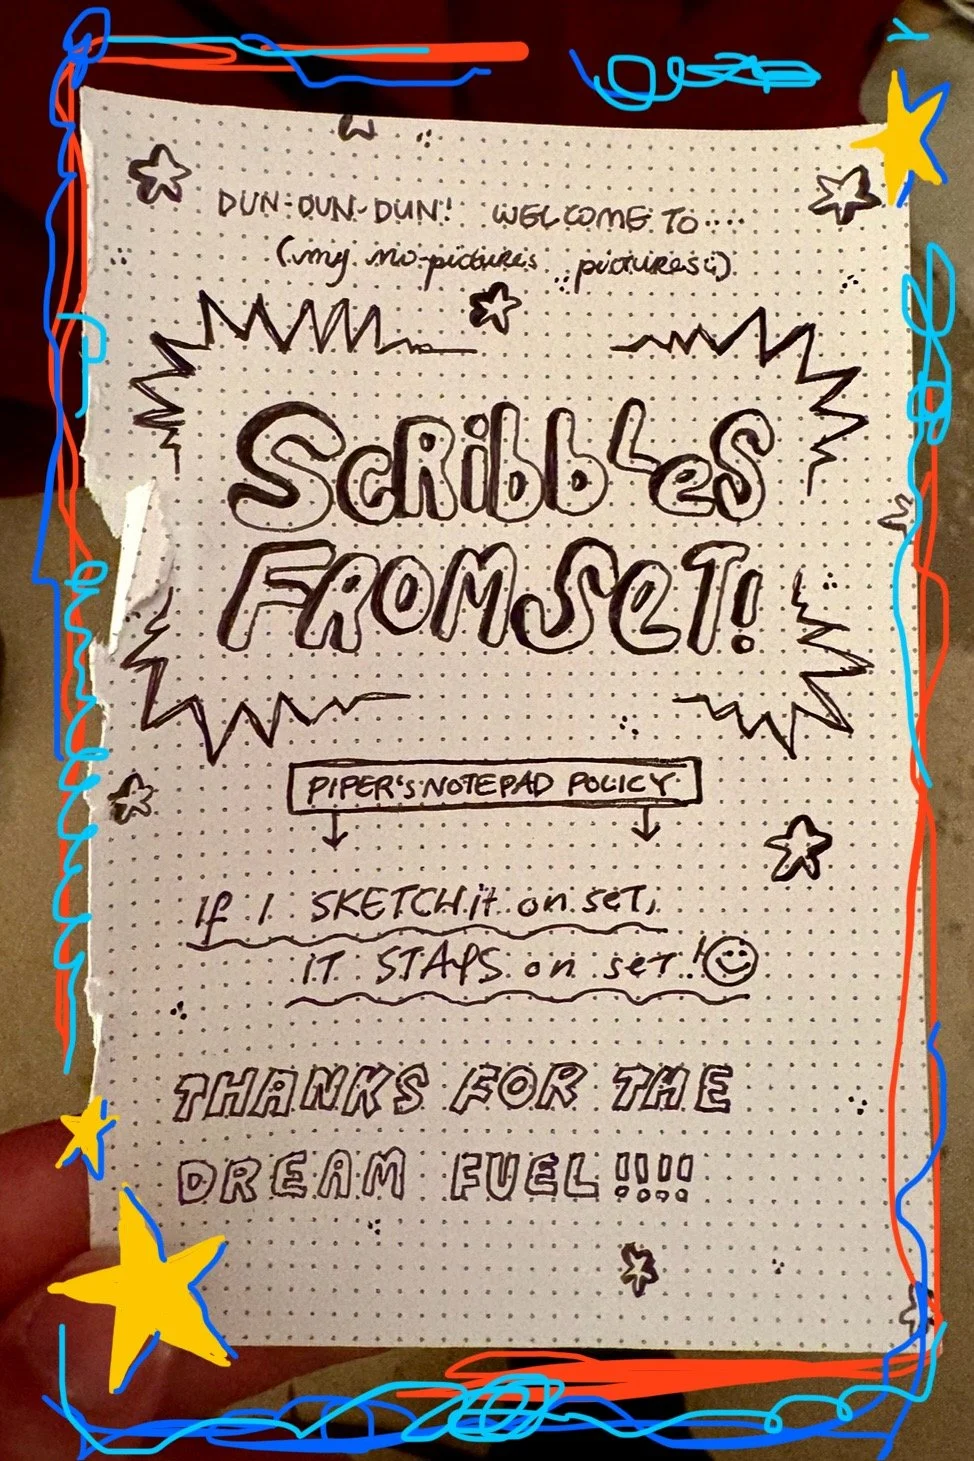 DUN-DUN-DUN! WELCOME TO...
(my no-pictures pictures:)
SCRIBBLES
FROM SET!
PIPER'S NOTEPAD POLICY
If I SKETCH it on set,
IT STAYS on set!
THANKS FOR THE
DREAM FUEL!!!!